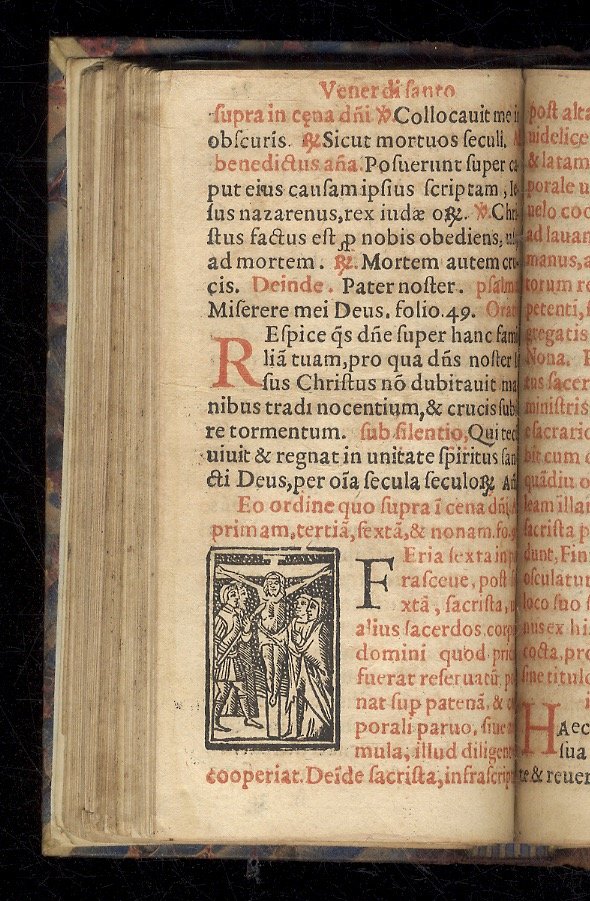 Venerdi santo
supra in cęna dñi ℣. Collocauit me i
obscuris. ℟. Sicut mortuos seculi.
benedictus aña. Posuerunt super ca
put eius causam ipsius scriptam, Ie
sus nazarenus, rex iudæ oꝝ. ℣. Chri
stus factus est ꝓ nobis obediens, us
ad mortem. ℟. Mortem autem cru
cis. Deinde. Pater noster. psalm
Miserere mei Deus. folio. 49. Orat
REspice q̃s dñe super hanc fami
liã tuam, pro qua dñs noster
sus Christus nõ dubitauit ma
nibus tradi nocentium, & crucis sub
re tormentum. sub silentio, Qui tec
uiuit & regnat in unitate spiritus san
cti Deus, per oĩa secula seculoꝝ Añ
Eo ordine quo supra ĩ cena dñi
primam, tertiã, sextã, & nonam. fo.
FEria sexta in p
rasceue, post
xtã, sacrista, u
alius sacerdos corp
domini quod prid
fuerat reseruatũ, p
nat sup patenã, & c
porali paruo, siue
mula, illud diligen
cooperiat. Deĩde sacrista, infrascript
post alta
uidelice
& latam
porale u
uelo coo
ad lauan
manus, a
torum re
petenti, s
gregatis
Nona.
tus sacer
ministris
e sacrario
bit cum
quãdiu o
leam illam
sacrista p
dunt, Fin
osculatur
loco suo s
nus ex his
cocta, pro
sine titulo
HAec
sua
te & reuer